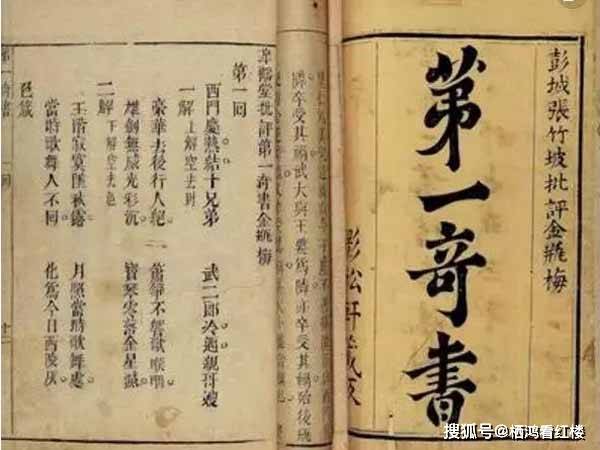 彭城張竹坡批評金瓶梅
第一奇書
影松軒藏板
皋鶴堂批評第一奇書金瓶梅
第一回
西門慶熱結十兄弟　武二郎冷遇親哥嫂
一解　上解空去財
豪華去後行人絕　簫箏不響歌喉咽
雄劍無威光彩沉　寶琴零落金星滅
二解　下解空去色
玉階寂寞墜秋露　月照當時歌舞處
當時歌舞人不回　化爲今日西陵灰
色箴
第一奇書　一回　十二
搜狐号@栖鸿看红楼